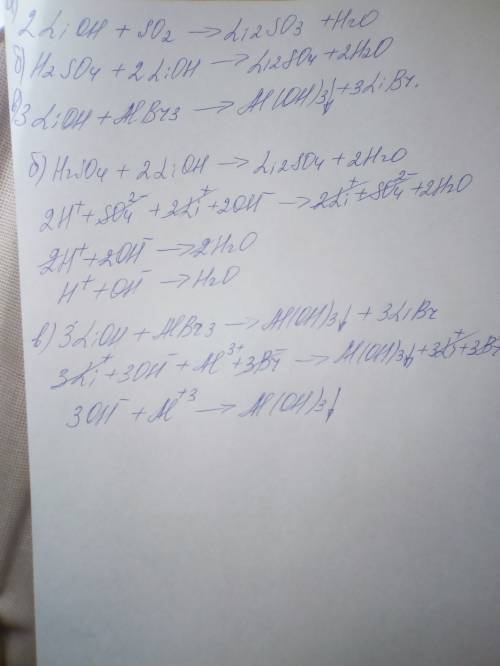 а) 2LiOH + SO2 → Li2SO3 + H2O
б) H2SO4 + 2LiOH → Li2SO4 + 2H2O
в) 3LiOH + AlBr3 → Al(OH)3↓ + 3LiBr.
б) H2SO4 + 2LiOH → Li2SO4 + 2H2O
2H⁺ + SO4²⁻ + 2Li⁺ + 2OH⁻ → 2Li⁺ + SO4²⁻ + 2H2O
2H⁺ + 2OH⁻ → 2H2O
H⁺ + OH⁻ → H2O
в) 3LiOH + AlBr3 → Al(OH)3↓ + 3LiBr
3Li⁺ + 3OH⁻ + Al³⁺ + 3Br⁻ → Al(OH)3↓ + 3Li⁺ + 3Br
3OH⁻ + Al⁺³ → Al(OH)3↓